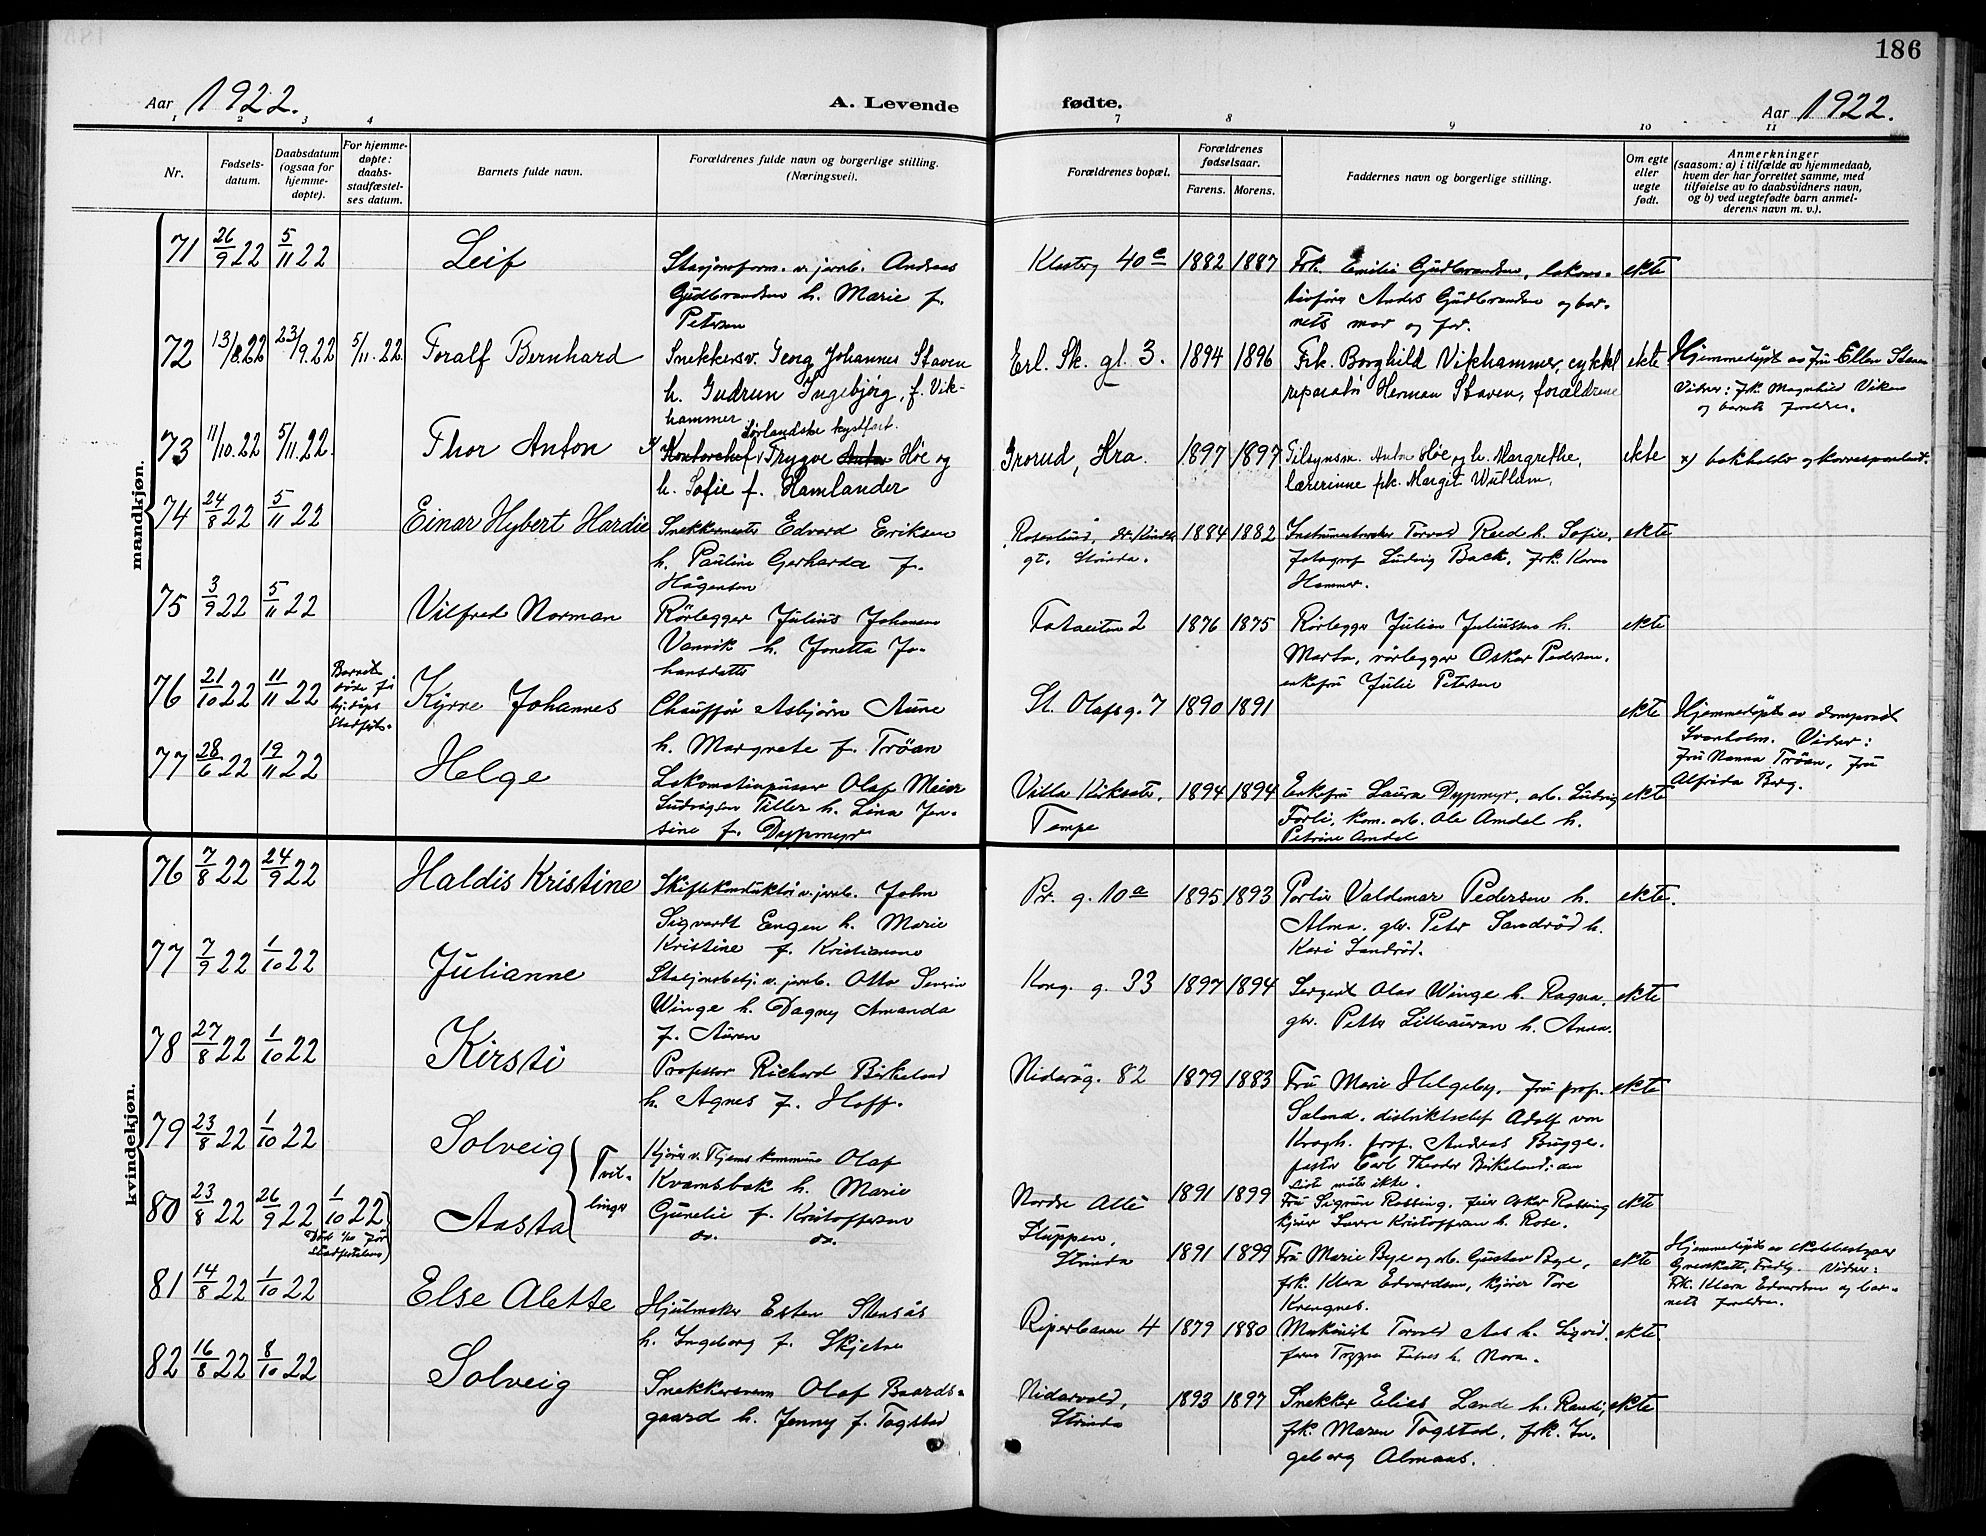 186
Aar 1922. A. Levende
fødte. Aar 1922.
1 2 3 4 7 8 9 10 11
Nr.
Fødsels-
datum.
Daabsdatum
(ogsaa for
hjemme-
døpte).
For hjemme-
døpte:
daabs-
stadfæstel-
ses datum.
Barnets fulde navn.
Forældrenes fulde navn og borgerlige stilling.
(Næringsvei).
Forældrenes bopæl.
Forældrenes
fødselsaar.
Farens. Morens.
Faddernes navn og borgerlige stilling.
Om egte
eller
uegte
født.
Anmerkninger
(saasom: a) i tilfælde av hjemmedaab,
hvem der har forrettet samme, med
tilføielse av to daabsvidners navn,
og b) ved uegtefødte barn anmel-
derens navn m. v.).
mandkjøn.
71 26/9 22 5/11 22 Leif
Andreas
Gudbrandsen h. Marie f.
Petersen
40 c 1882 1887 Frk. Emilie Gudbrandsen, lokomo-
tivfører Gudbrandsen og bar-
nets mor og far.
ekte
72 13/8 22 23/9 22 5/11 22 Toralf Bernhard
Snekkersv. Georg Johannes Staven
h. Gudrun Ingebjørg, f. Vik-
hammer
Erl. Sk. gt. 3. 1894 1896
Frk. Borghild Vikhammer, cykkel
reparatør Herman Staven, forældrene
ekte
Hjemmedøpt av fru Ellen Staven
Vidner: frk. Magnhild Viken
og barnets foreldre.
73 11/10 22 5/11 22 Thor Anton
Sørlandske kystfart.
x) Kontorchef v. Trygve Anton Høe og
h. Sofie f. Hamlander
Grorud, Kra. 1897 1897
Tilsynsm. Anton Høe og h. Margrethe,
lærerinne frk. Margit Wullum.
ekte
x) bokholder og korrespondent.
74 24/8 22 5/11 22 Einar Hybert Hardie
Snekkermester Edvard Eriksen
h. Pauline Gerharda f.
Hågensen
Rosenlund,
gt. Strinda. 1884 1882
Torvald Reed h. Sofie,
fotograf Ludvig Back, frk. Karen
Hammer.
ekte
75 3/9 22 5/11 22 Vilfred Norman
Rørlegger Julius Johansen
Vanvik h. Jonetta Jo-
hansdatter
2 1876 1875
Rørlegger Julian Juliussen h.
Marta, rørlegger Oskar Pedersen,
enkefru Julie Petersen
ekte
76 21/10 22 11/11 22 Kyrre Johannes
Barnet
døde før
hj.døps
Stadfest.
Chauffør Asbjørn Aune
h. Margrete f. Trøan
St. Olafsg. 7 1890 1891
ekte
Hjemmedøpt av domprost
Svanholm. Vidner:
fru Nanna Trøan, fru
Alfrida Berg.
77 28/6 22 19/11 22 Helge
Lokomotivpusser Olaf Meier
Ludvigsen Tiller h. Lina Jen-
sine f. Dypmyr
Villa Kirksæter,
Tempe 1894 1894
Enkefru Laura Dypmyr, arb. Ludvig
Forli, kom. arb. Ole Amdal h.
Petrine Amdal
ekte
kvindekjøn.
76 7/8 22 24/9 22 Haldis Kristine
Skiftekonduktør v. jernb. John
Sigvardt Engen h. Marie
Kristine f. Kristiansen
Pr. g. 10 a 1895 1893
Portier Valdemar Pedersen h.
Alma, gbr. Peter Sandrød h.
Kari Sandrød.
ekte.
77 7/9 22 1/10 22 Julianne
Stasjonsbetj. v. jernb. Otto
Winge h. Dagny Amanda
f. Auran
Kong. g. 33 1897 1894
Sergeant Olav Winge h. Ragna,
gbr. Petter Lilleauran h. Anna.
ekte
78 27/8 22 1/10 22 Kirsti
Professor Richard Birkeland
h. Agnes f. Hoff.
Nidarøg. 82 1879 1883
Fru Marie Helgeby, fru prof.
Saland, distriktschef Adolf von
Krogh, prof. Andreas Bugge,
pastor Carl Theodor Birkeland; den
sist møtte ikke.
ekte
79 23/8 22 1/10 22 Solveig
Tvil-
linger
Kjører v. Hjems kommune Olaf
Kvamsbak h. Marie
Gunelie f. Kristoffersen
Nordre Allé
Sluppen,
Strinda
1891 1899
Fru Sigrun Rossing, feier Oskar Rossing
kjører Kristoffersen h. Rose.
ekte
80 23/8 22 26/9 22 1/10 22 Aasta
(Død før
Stadfestelsen)
do. do.
1891 1899
Fru Marie Bye og arb. Gustav Bye,
frk. Klara Edvardsen, kjører Tore
Krengnes.
ekte
Hjemmedøpt av skolebestyrer
Vidner:
Frk. Klara Edvardsen og bar-
nets foreldre.
81 14/8 22 1/10 22 Else Alette
Hjulmaker Esten Stensås
h. Ingeborg f. Skjetne
Ripperbanen 4 1879 1880
Maskinist Torvald Aas h. Sigrid,
h. Nora.
ekte.
82 16/8 22 8/10 22 Solveig
Snekkersvenn Olaf Baards-
gaard h. Jenny f. Togstad
Nidarvold,
Strinda 1893 1897
Snekker Elias Lande h. Randi,
frk. Maren Togstad, frk. In-
geborg Almaas.
ekte